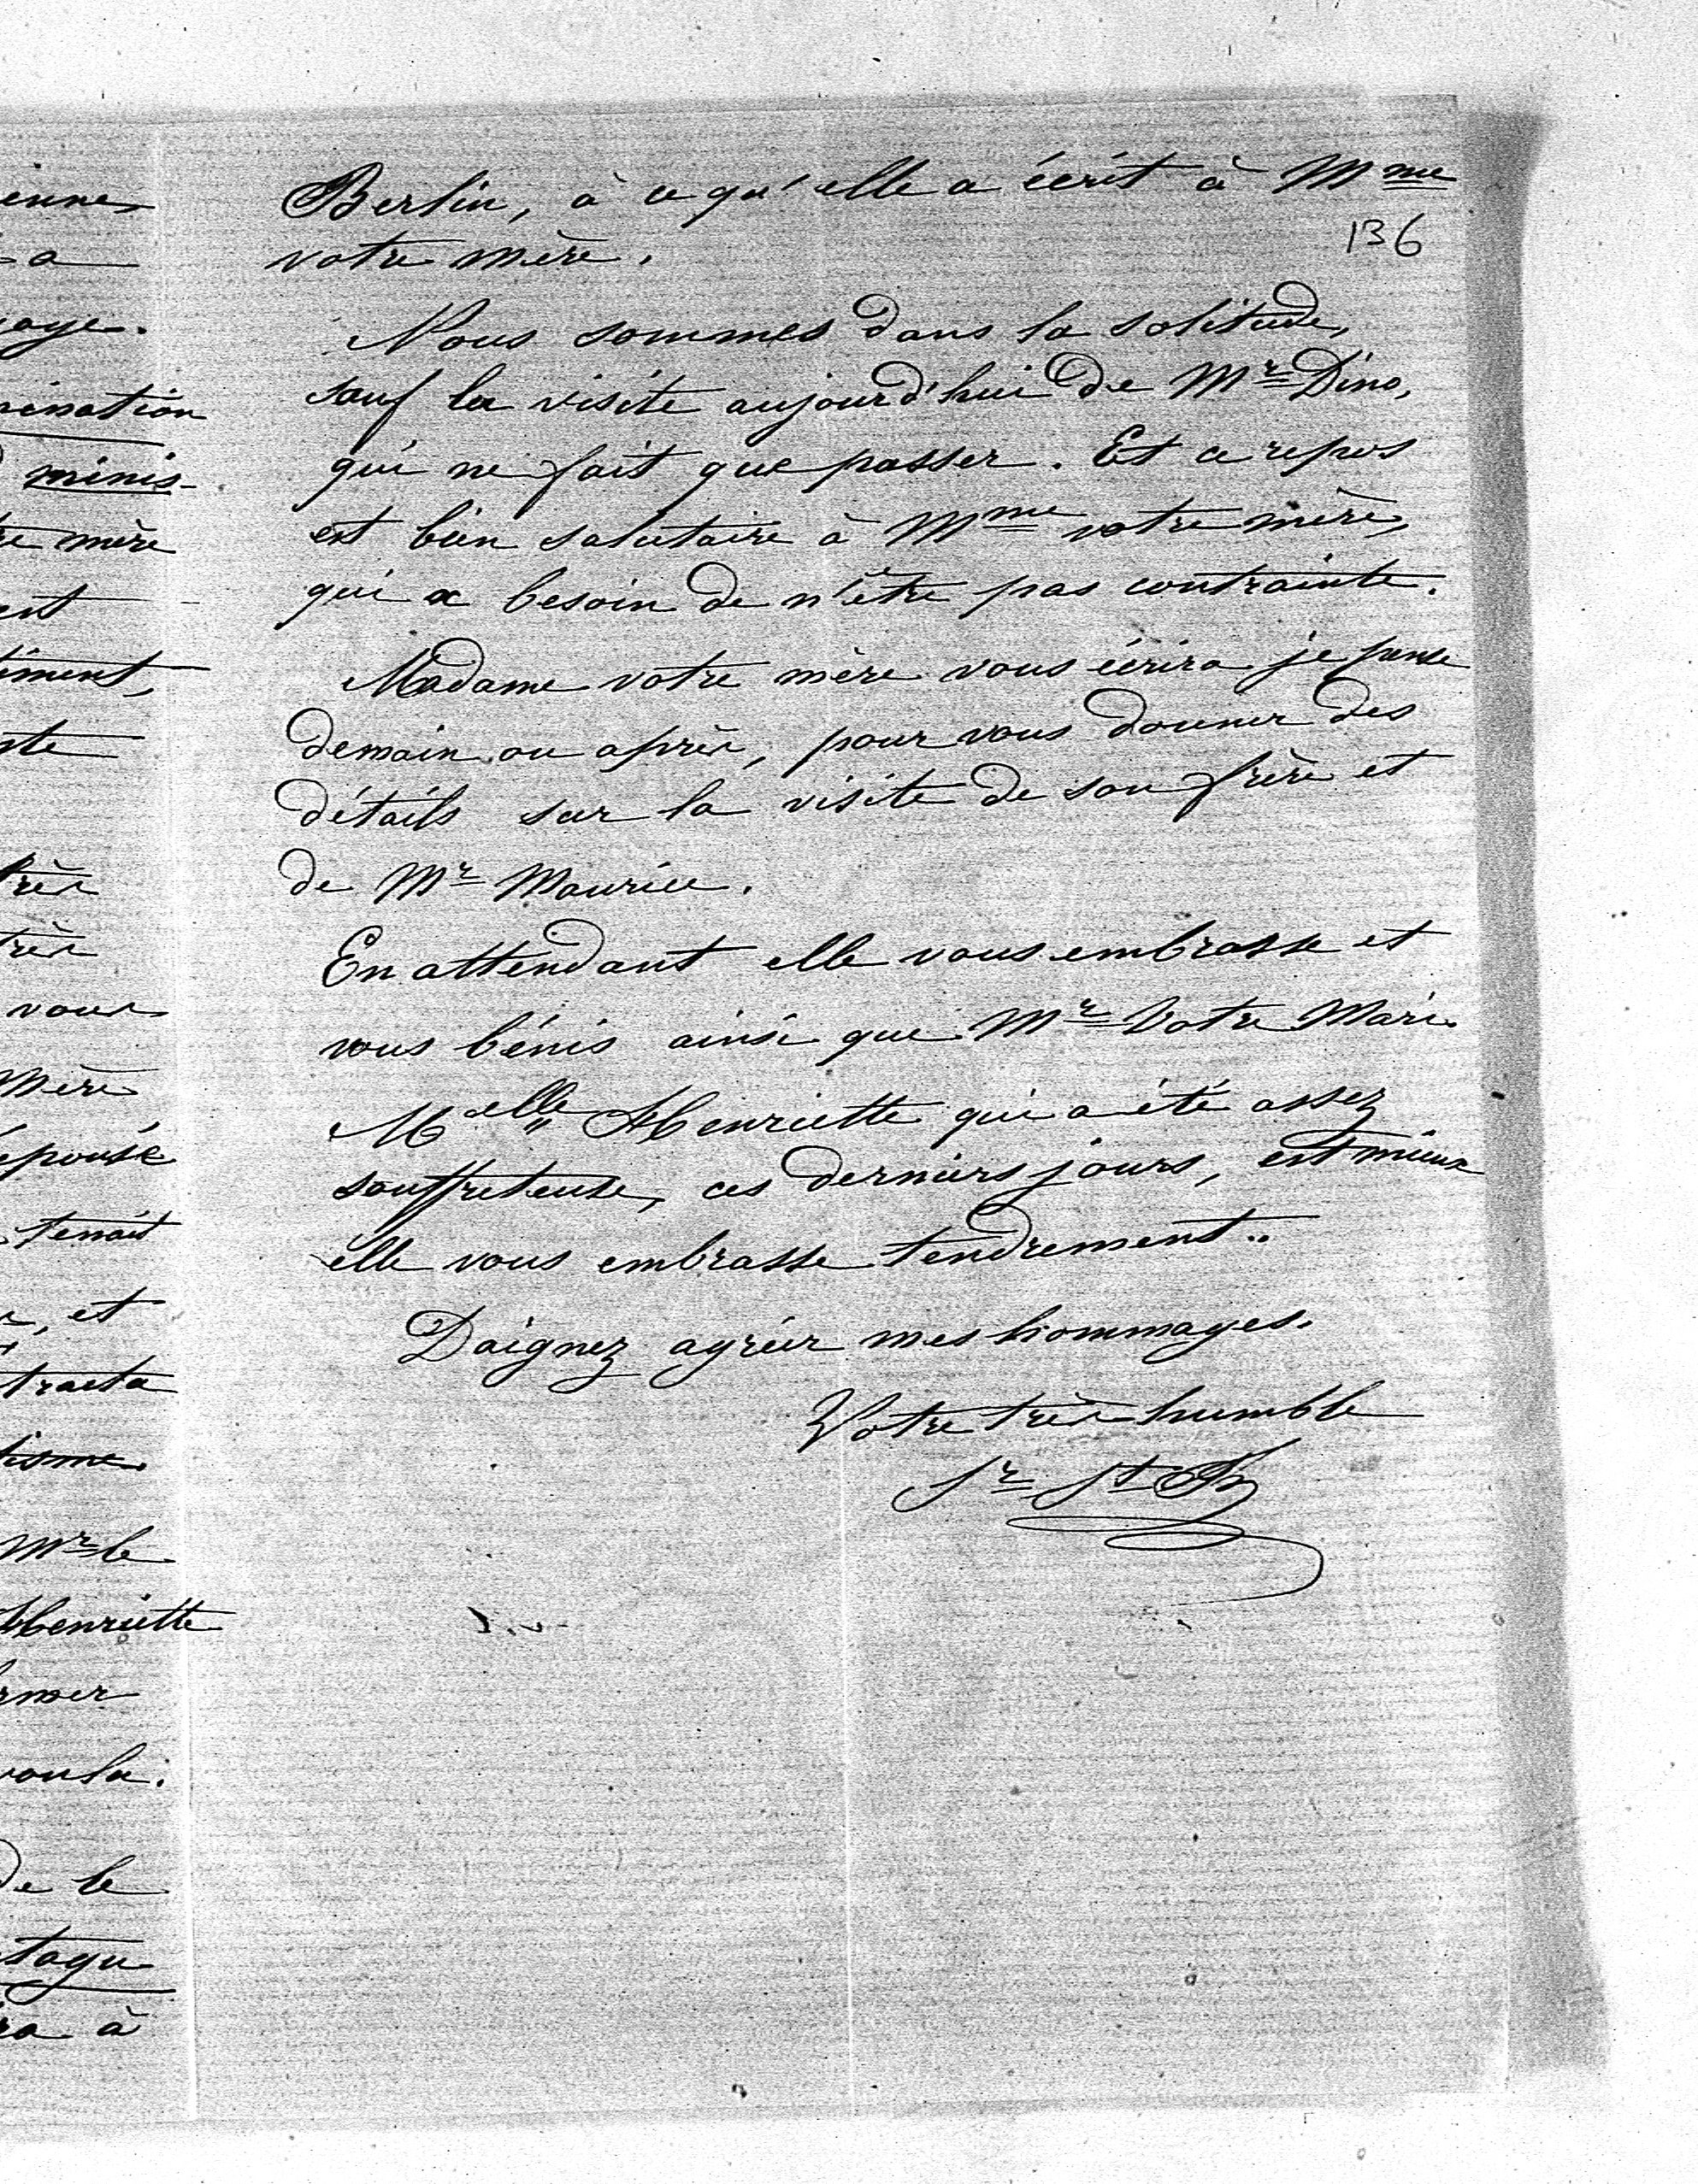 enne
a
oye.
nination
minis-
re mère
est
timent,
ste
très
très
vous
Mère
épousé
tenait
, et
tracta
tisme.
Mr le
Henriette
rmer
voulu.
de le
stagu
ra à
Berlin, à ce qu'elle a écrit à Mme
136
votre mère.
Nous sommes dans la solitude,
sauf la visite aujourd'hui de Mr Dino,
qui ne fait que passer. Et ce repos
est bien salutaire à Mme votre mère,
qui a besoin de n'être pas contrainte.
Madame votre mère vous écrira je pense
demain ou après, pour vous donner des
détails sur la visite de son frère et
de Mr Maurice.
En attendant elle vous embrasse et
vous bénis ainsi que Mr Votre Mari.
Melle Henriette qui a été assez
souffreteuse, ces derniers jours, est mieux
elle vous embrasse tendrement..
Daignez agréer mes hommages.
Votre très humble
Sr St